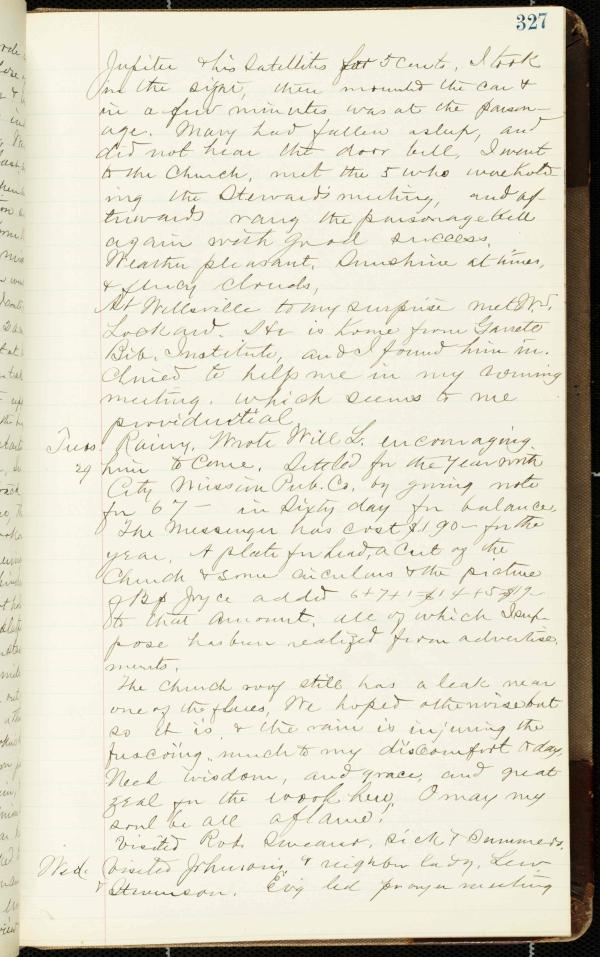 327
Jupiter & his Satellites for 5 cents. I took
in the sight, then mounted the car &
in a few minutes was at the parson-
age. Mary had fallen asleep, and
did not hear the door bell. I went
to the Church, met the 5 who were hold-
ing the Stewards meeting, and af
terwards rang the parsonage bell
again with good success.
Weather pleasant. Sunshine at times,
& fleecy clouds,
At Wellsville to my surprise met Wm.
Lockard. He is home from Garrett
Bib. Institute, and I found him in-
clined to help me in my coming
meeting. which seems to me
providential
Tues Rainy. Wrote Will L. encouraging
29 him to come. Settled for the Year with
City Mission Pub. Co. by giving note
for 67 — in Sixty day for balance.
The Messenger has cost $190 — for the
year. A plate for head, a Cut of the
Church & some circulars & the picture
of Bp Joyce added 6+7+1=$14+5=$19—
to that amount, all of which I sup-
pose has been realized from advertise-
ments.
The Church roof still has a leak near
one of the flues. We hoped otherwise but
so it is & the rain is injuring the
frescoing, much to my discomfort to day.
Need wisdom, and grace, and great
zeal for the work here, O may my
soul be all aflame!
Visited Rob. sick & Summers.
Wed. Visited Johnsons, & neighbor lady, Lew
Stevenson. Ev'g led prayer meeting